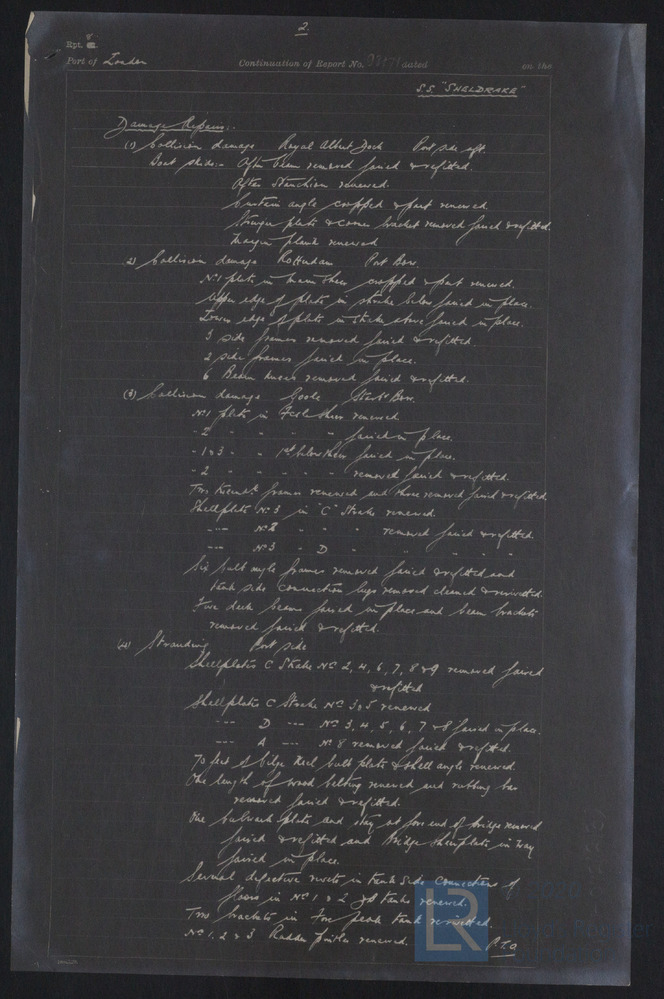 2
Rpt. 8
Port of London Continuation of Report No. dated on the
S.S. "SHELDRAKE"
Damage Repairs:-
(1) Collision damage Royal Albert Dock Port side aft.
Boat skids:- After beam removed faired & refitted.
After Stanchion renewed.
Curtain angle cropped & part renewed.
Stringer plate & corner bracket removed faired & refitted.
Margin plank renewed
2) Collision damage Rotterdam Port Bow.
No 1 plate in main sheer cropped & part renewed.
Upper edge of plate in strake below faired in place.
Lower edge of plate in strake above faired in place.
3 side frames removed faired & refitted.
2 side frames faired in place.
6 Beam knees removed faired & refitted.
(3) Collision damage Goole Starb Bow.
No 1 plate in Fcsle sheer renewed.
- 2 - - - - faired in place.
- 1 & 3 - - 1st below sheer faired in place.
- 2 - - - - - removed faired & refitted.
Two frames renewed and three removed faired & refitted
Shellplate No 3 in "C" Strake renewed.
--- No 2 - - - removed faired & refitted
--- No 3 - D - - - - -
Six bulb angle frames removed faired & refitted and
tank side connection lugs removed cleaned & reriveted.
Five deck beams faired in place and beam brackets
removed faired & refitted.
(4) Stranding Port side
Shellplates C Strake No 2, 4, 6, 7, 8 & 9 removed faired
& refitted
Shellplates C Strake No 3 & 5 renewed
--- D --- No 3, 4, 5, 6, 7 & 8 faired in place.
--- A --- No 8 removed faired & refitted.
70 feet of bilge keel bulb plate & shell angle renewed.
One length of wood belting renewed and rubbing bar
removed faired & refitted.
One bulwark plate and stay at fore end of bridge removed
faired & refitted and Bridge sheerplate in way
faired in place.
Several defective rivets in tank side connections of
floors in No 1 & 2 tanks renewed.
Two brackets in Fore peak tank reriveted.
No 1, 2 & 3 Rudder pintles renewed. P.T.O
LR